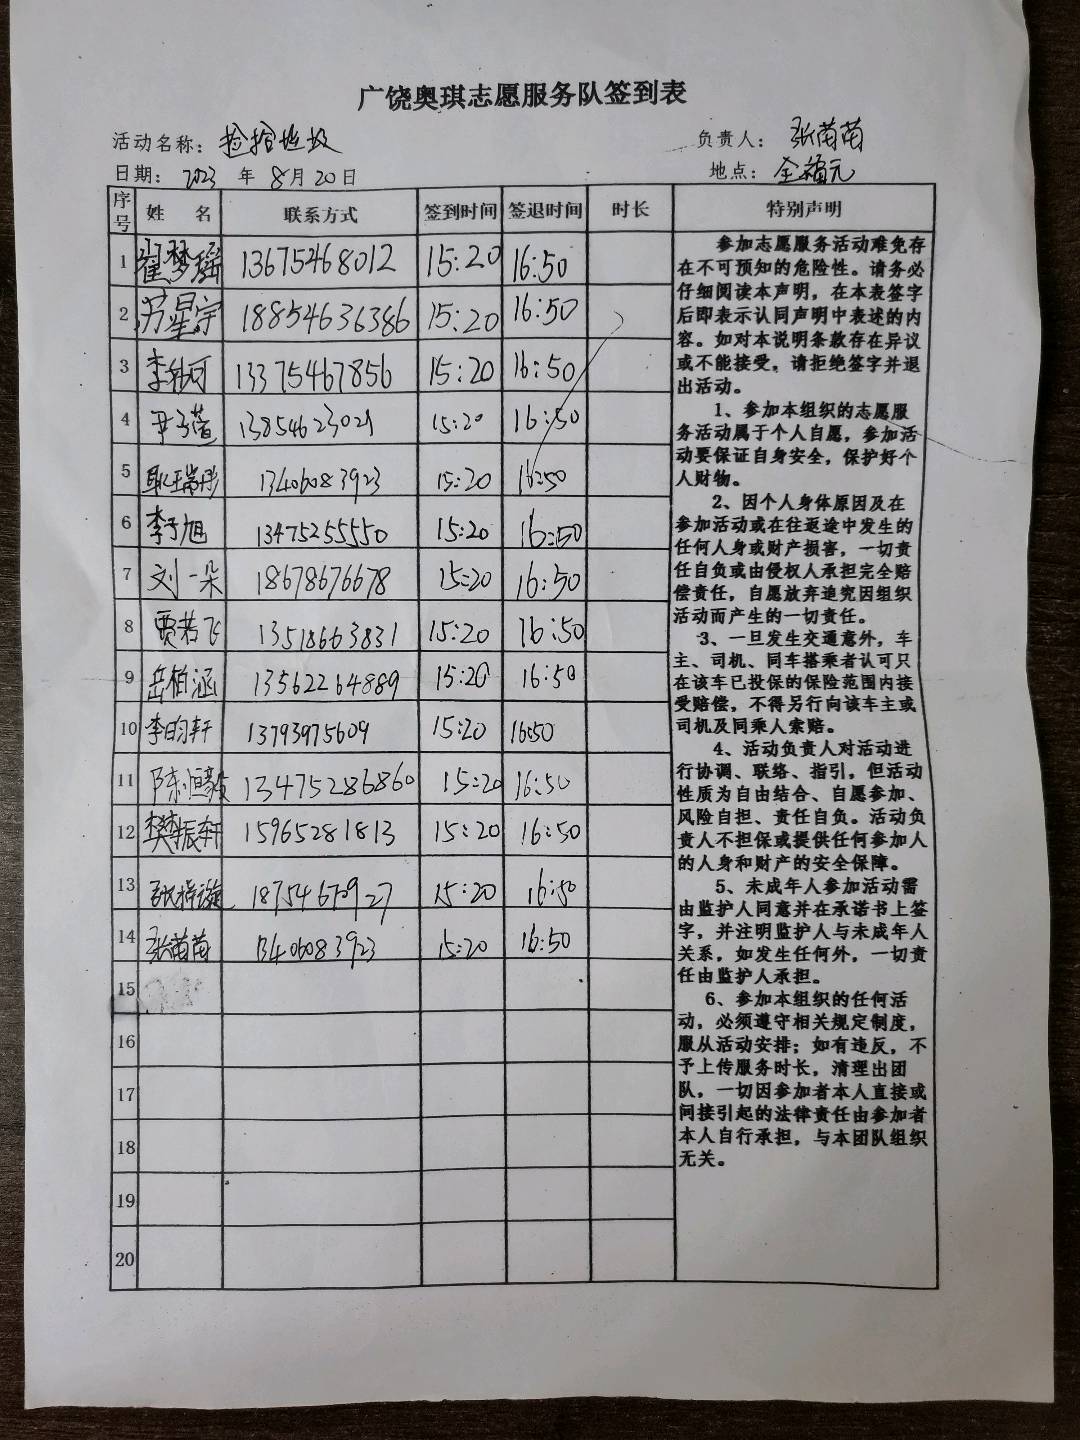 广饶奥琪志愿服务队签到表
活动名称：捡拾垃圾 负责人：张苗苗
日期：2023 年 8月20日 地点：全福元
序号 姓 名 联系方式 签到时间 签退时间 时长 特别声明
1 翟梦瑶 13675468012 15:20 16:50
2 星宇 18854636386 15:20 16:50
3 李 可 13375467856 15:20 16:50
4 尹子萱 13854623021 15:20 16:50
5 耿瑞彤 13406083923 15:20 16:50
6 李子旭 13475255550 15:20 16:50
7 刘一朵 18678676678 15:20 16:50
8 贾若飞 13518663831 15:20 16:50
9 岳柏涵 13562264889 15:20 16:50
10 李昀轩 13793975609 15:20 16:50
11 陈恒毅 13475286860 15:20 16:50
12 樊振轩 15965281813 15:20 16:50
13 18754679927 15:20 16:50
14 张苗苗 13406083923 15:20 16:50
15
16
17
18
19
20
参加志愿服务活动难免存
在不可预知的危险性。请务必
仔细阅读本声明，在本表签字
后即表示认同声明中表述的内
容。如对本说明条款存在异议
或不能接受，请拒绝签字并退
出活动。
1、参加本组织的志愿服
务活动属于个人自愿，参加活
动要保证自身安全，保护好个
人财物。
2、因个人身体原因及在
参加活动或在往返途中发生的
任何人身或财产损害，一切责
任自负或由侵权人承担完全赔
偿责任，自愿放弃追究因组织
活动而产生的一切责任。
3、一旦发生交通意外，车
主、司机、同车搭乘者认可只
在该车已投保的保险范围内接
受赔偿，不得另行向该车主或
司机及同乘人索赔。
4、活动负责人对活动进
行协调、联络、指引，但活动
性质为自由结合、自愿参加、
风险自担、责任自负。活动负
责人不担保或提供任何参加人
的人身和财产的安全保障。
5、未成年人参加活动需
由监护人同意并在承诺书上签
字，并注明监护人与未成年人
关系，如发生任何外，一切责
任由监护人承担。
6、参加本组织的任何活
动，必须遵守相关规定制度，
服从活动安排；如有违反，不
予上传服务时长，清理出团
队，一切因参加者本人直接或
间接引起的法律责任由参加者
本人自行承担，与本团队组织
无关。